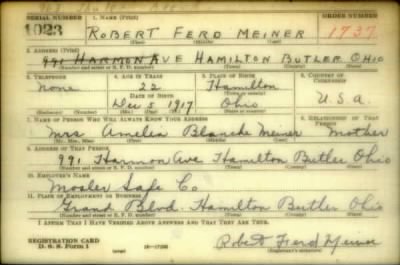 SERIAL NUMBER 1. NAME (Print) ORDER NUMBER
1023 ROBERT FERD MEINER 1737
(First) (Middle) (Last)
2. ADDRESS (Print)
991 HARMON AVE HAMILTON BUTLER OHIO
(Number and street or R. F. D. number) (Town) (County) (State)
3. TELEPHONE 4. AGE IN YEARS 5. PLACE OF BIRTH 6. COUNTRY OF CITIZENSHIP
None 22 Hamilton
DATE OF BIRTH (Town or county)
Dec 5 1917 Ohio U.S.A.
(Exchange) (Number) (Mo.) (Day) (Yr.) (State or country)
7. NAME OF PERSON WHO WILL ALWAYS KNOW YOUR ADDRESS 8. RELATIONSHIP OF THAT PERSON
Mrs Amelia Blanche Meiner Mother
(Mr., Mrs., Miss) (First) (Middle) (Last)
9. ADDRESS OF THAT PERSON
991 Harmon Ave Hamilton Butler Ohio
(Number and street or R. F. D. number) (Town) (County) (State)
10. EMPLOYER'S NAME
Mosler Safe Co
11. PLACE OF EMPLOYMENT OR BUSINESS
Grand Blvd. Hamilton Butler Ohio
(Number and street or R. F. D. number) (Town) (County) (State)
I AFFIRM THAT I HAVE VERIFIED ABOVE ANSWERS AND THAT THEY ARE TRUE.
REGISTRATION CARD
D. S. S. Form 1 16-17105 Robert Ferd Meiner
(Registrant's signature)